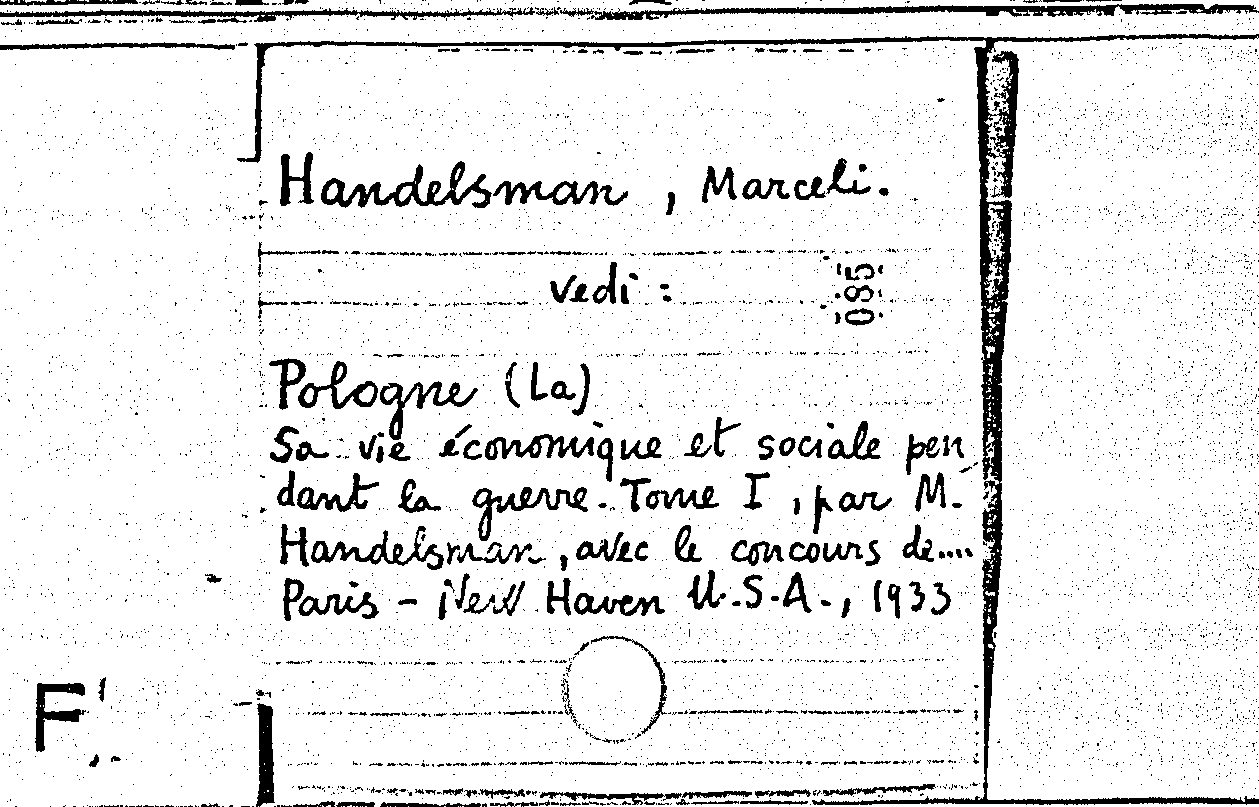 Handelsman, Marceli.
vedi:
085
Pologne (La)
Sa vie économique et sociale pen
dant la guerre. Tome I, par M.
Handelsman, avec le concours de....
Paris - New Haven U.S.A., 1933
F